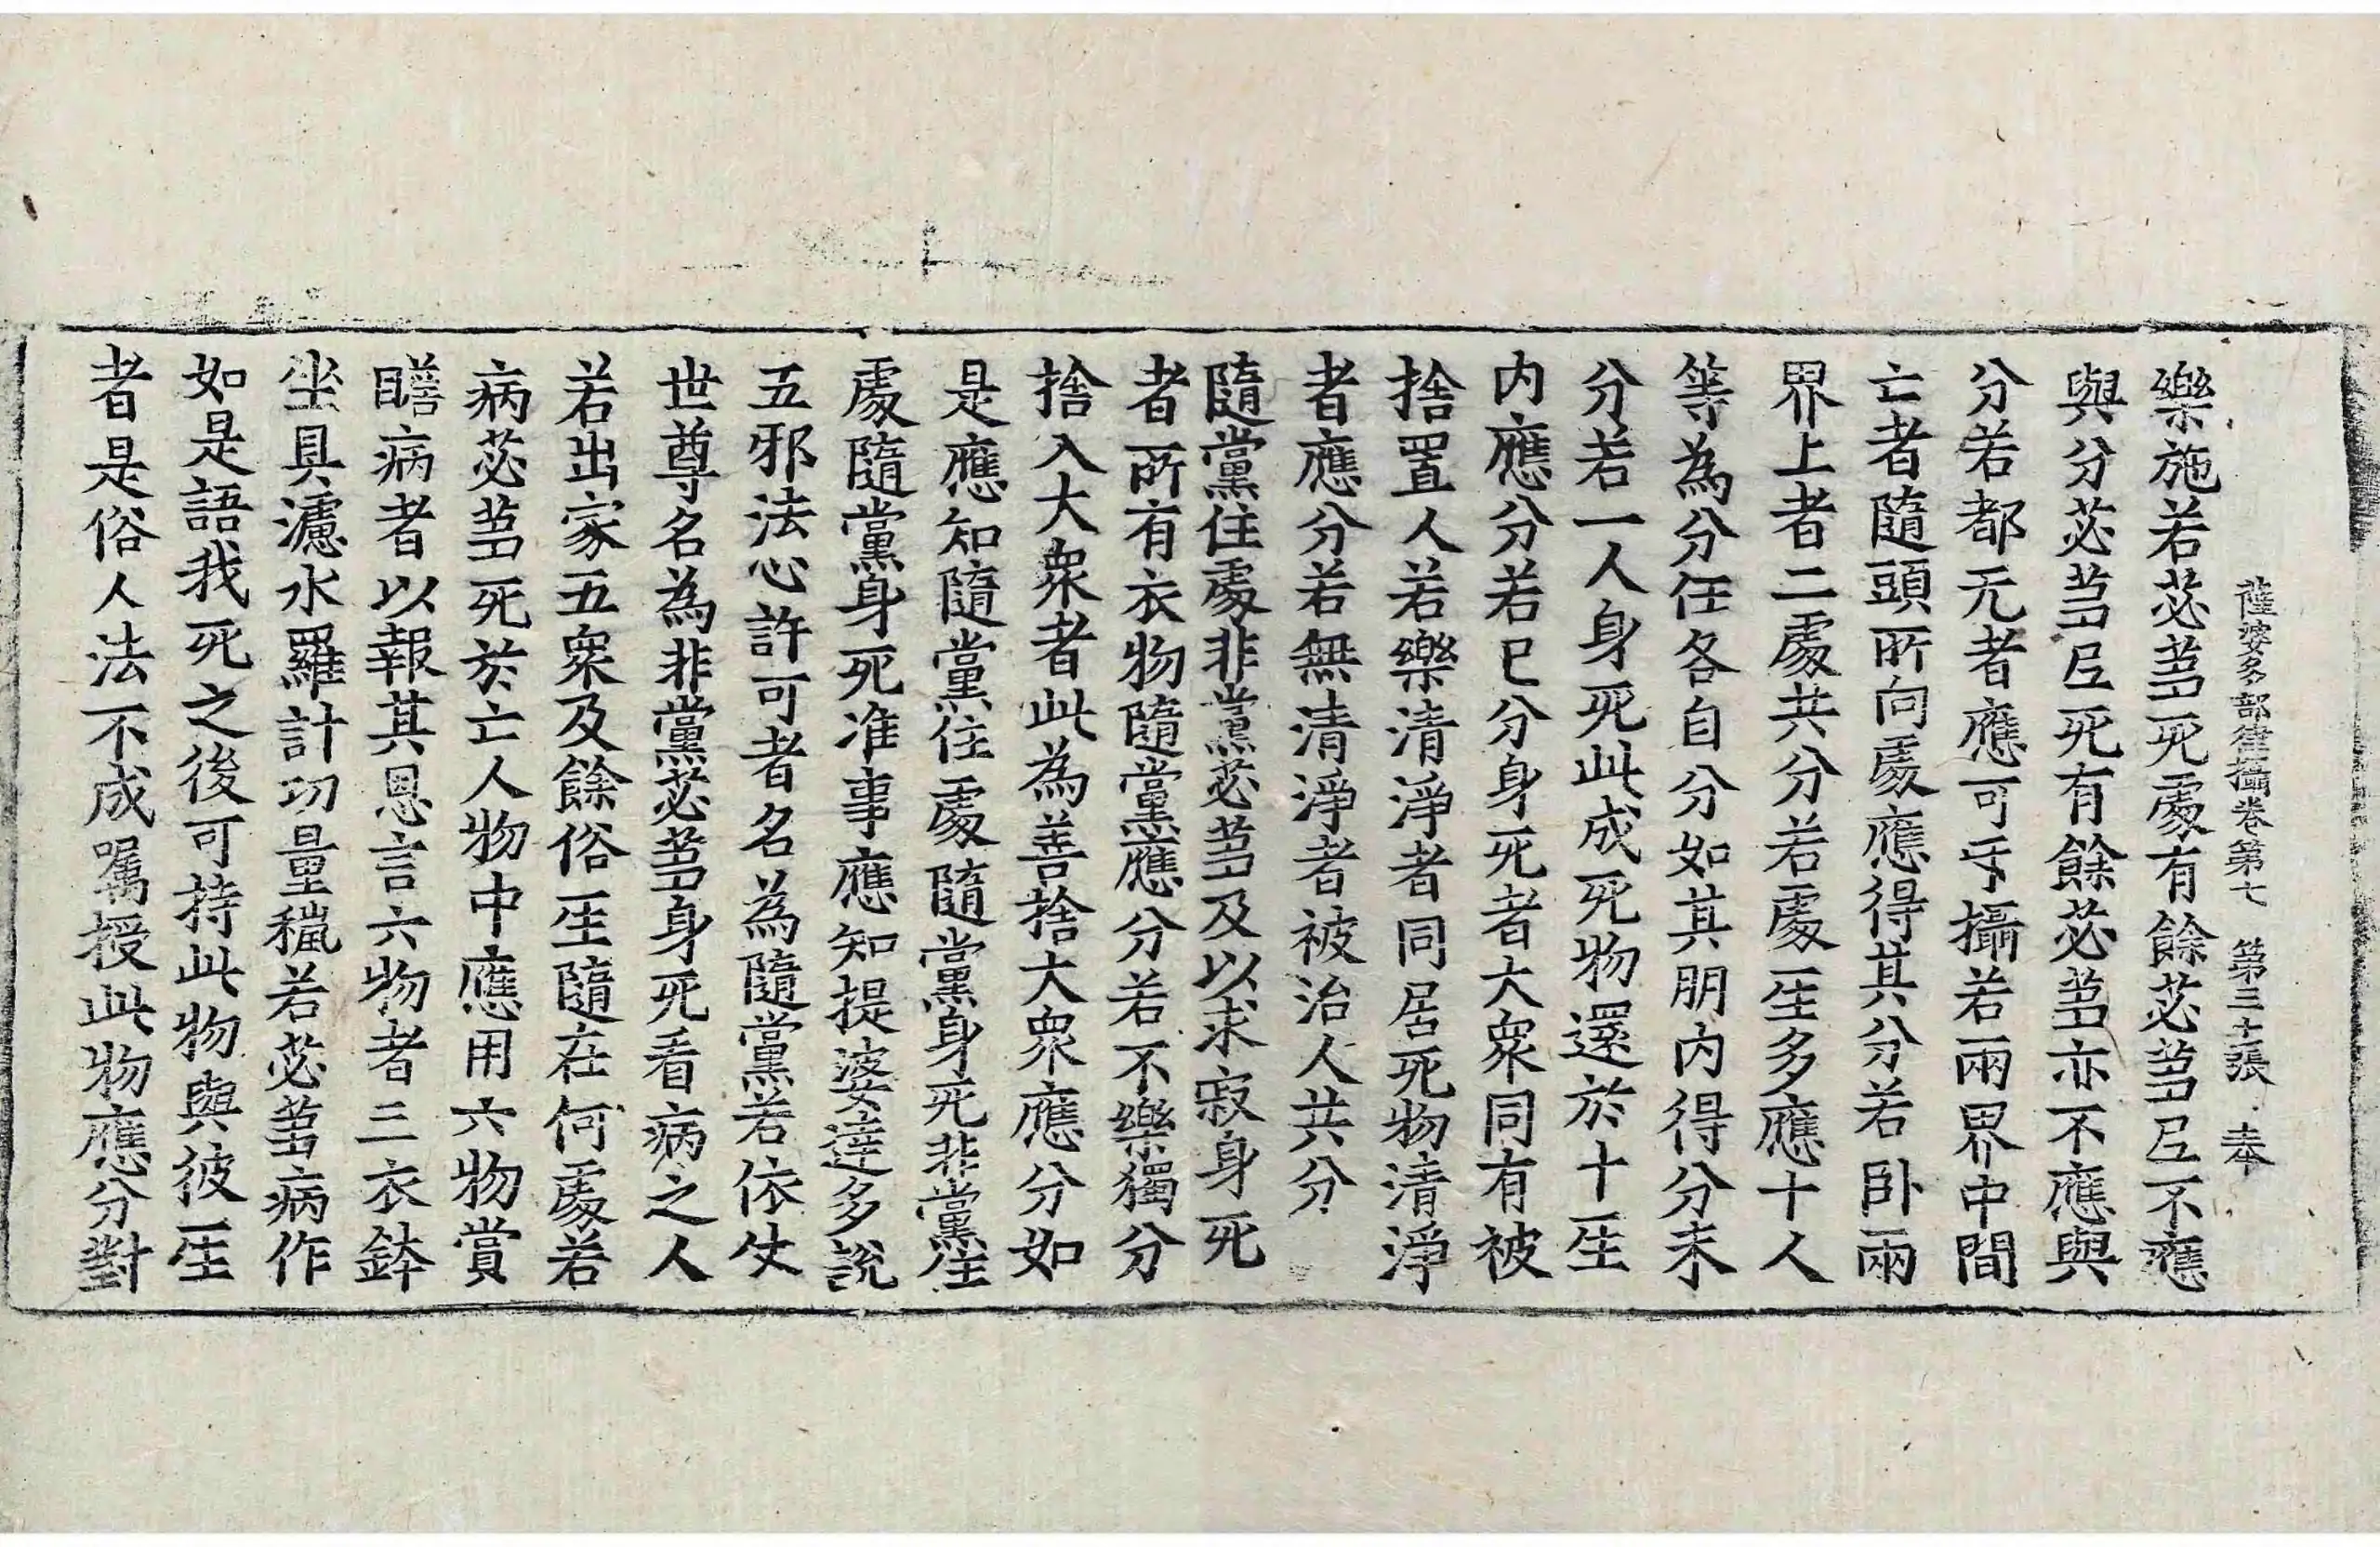 薩婆多部律攝卷第七　第三十張　奉
樂施若苾芻死處有餘苾芻尼不應
與分苾芻尼死有餘苾芻亦不應與
分若都无者應可互攝若兩界中間
亡者隨頭所向處應得其分若卧兩
界上者二處共分若處㘴多應十人
等為分任各自分如其朋内得分未
分若一人身死此成死物還於十㘴
内應分若已分身死者大衆同有被
捨置人若樂清淨者同居死物清淨
者應分若無清淨者被治人共分
隨黨住處非黨苾芻及以求寂身死
者所有衣物隨黨應分若不樂獨分
捨入大衆者此為善捨大衆應分如
是應知隨黨住處隨黨身死非黨㘴
處隨黨身死准事應知提婆達多說
五邪法心許可者名為隨黨若依仗
世尊名為非黨苾芻身死看病之人
若出家五衆及餘俗㘴隨在何處若
病苾芻死於亡人物中應用六物賞
瞻病者以報其恩言六物者三衣鉢
坐具濾水羅計功量穢若苾芻病作
如是語我死之後可持此物與彼㘴
者是俗人法不成囑授此物應分對